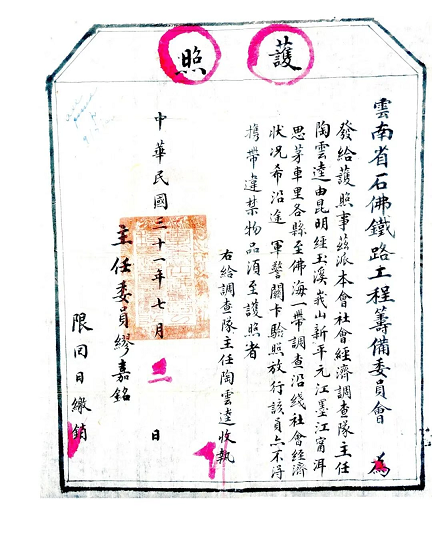 護照
雲南省石佛鐵路工程籌備委員會 為
發給護照事茲派本會社會經濟調查隊主任
陶雲逵由昆明經玉溪峩山新平元江墨江甯洱
思茅車里各縣至佛海一帶調查沿綫社會經濟
狀况希沿途 軍警關卡驗照放行該員亦不得
攜帶違禁物品須至護照者
右給調查隊主任陶雲逵收執
中華民國三十一年七月 二 日
主任委員繆嘉銘
限回日繳銷